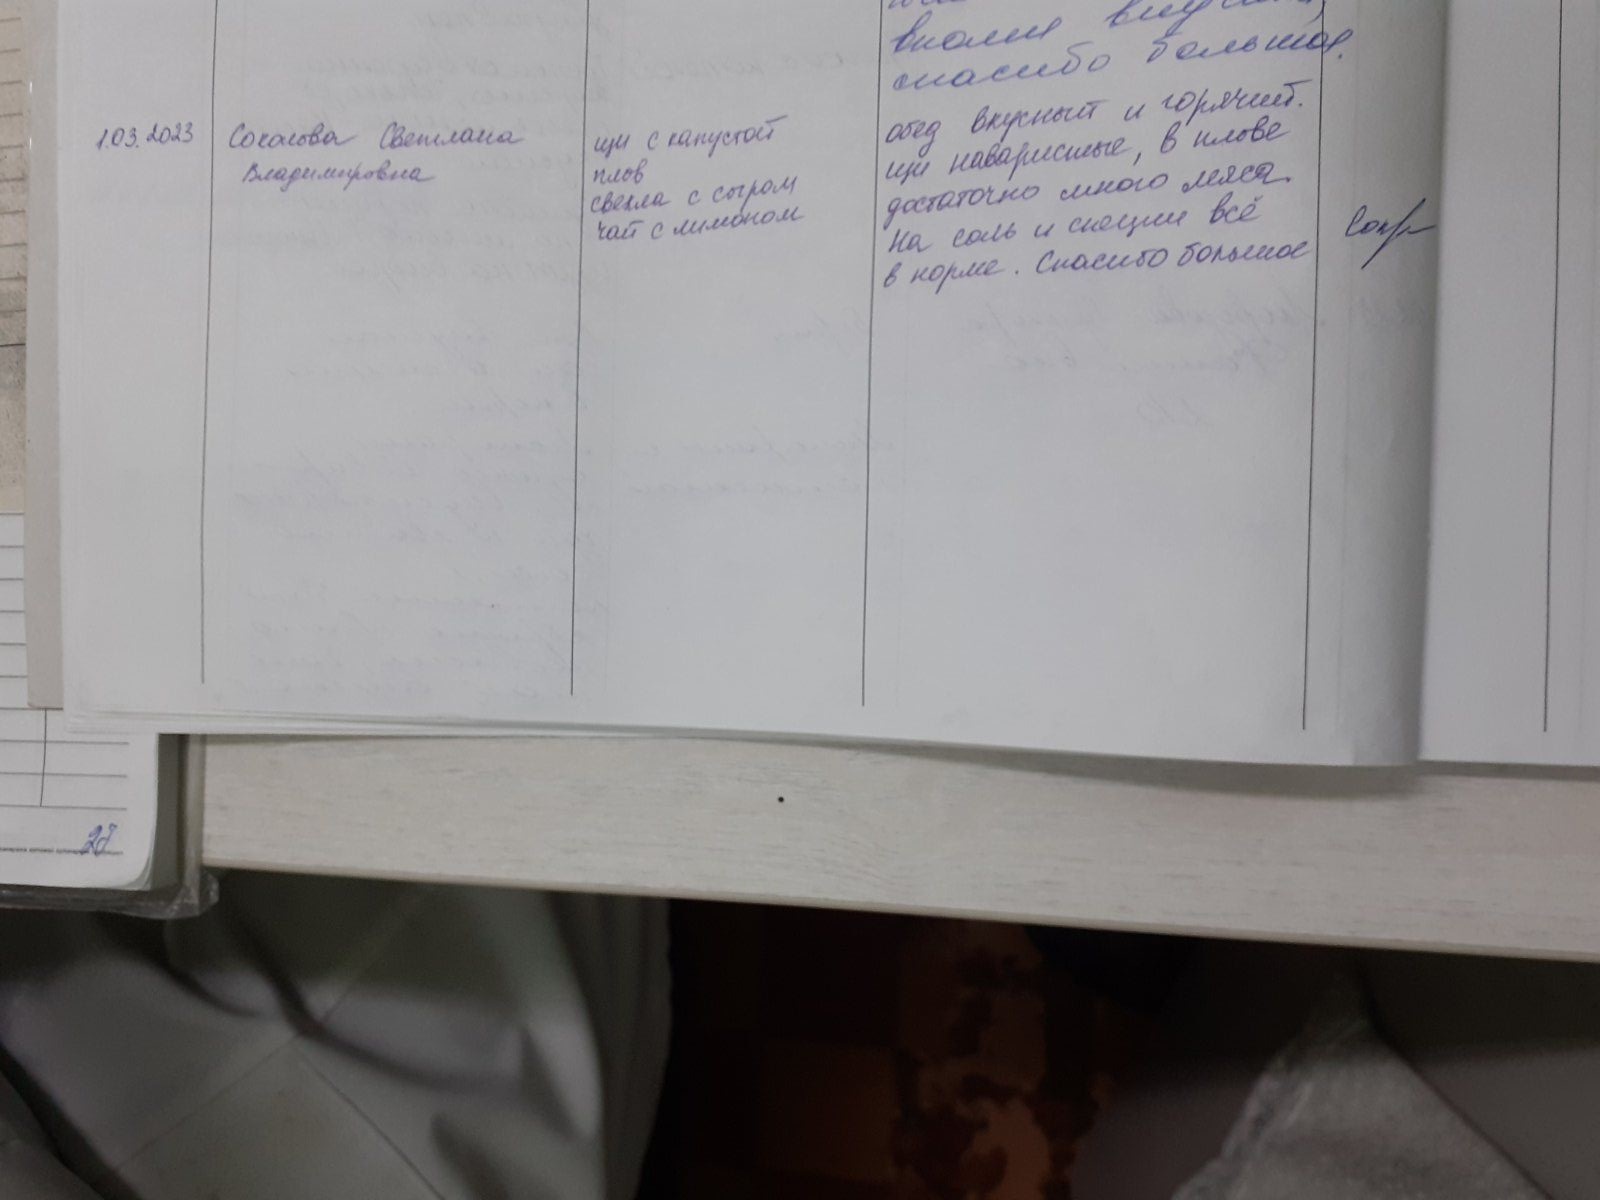 вполне вкусно,
спасибо большое.
1.03.2023 Соколова Светлана
Владимировна
щи с капустой
плов
свекла с сыром
чай с лимоном
обед вкусный и горячий.
щи наваристые, в плове
достаточно много мяса.
На соль и специи всё
в норме. Спасибо большое